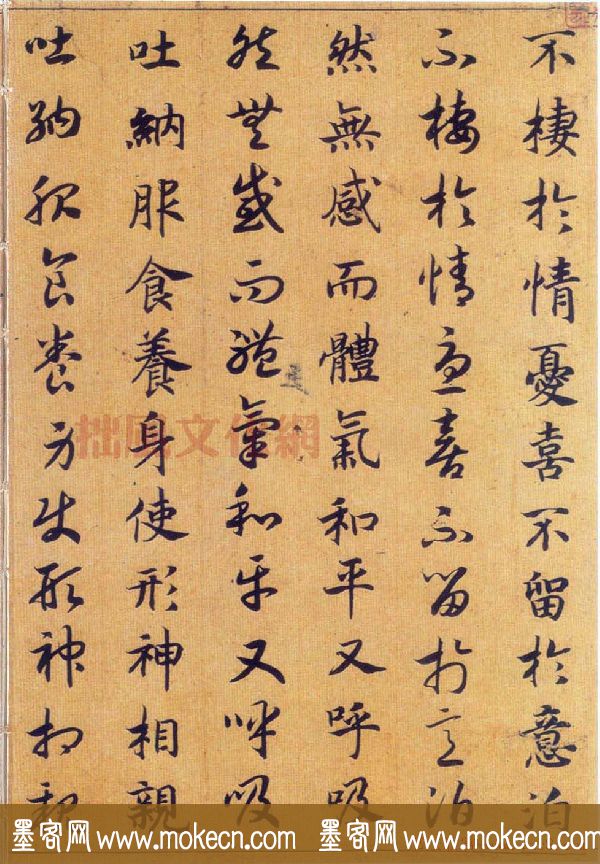 不棲於情憂喜不留於意泊
不棲於情憂喜不留於意泊
然無感而體氣和平又呼吸
然無感而體氣和平又呼吸
吐納服食養身使形神相親
吐納服食養身使形神相親
拙風文化網
墨客网 www.mokecn.com 墨客网 www.mokecn.com